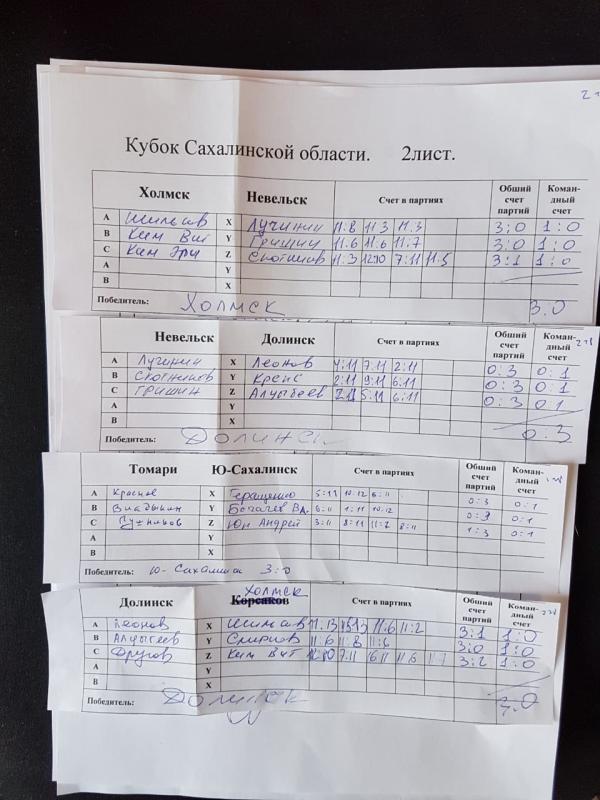 Кубок Сахалинской области. 2лист.
Холмск Невельск Счет в партиях Общий счет партий Коман- дный счет
A X Лучинин 11:8 11:3 11:3 3:0 1:0
B Ким Вит Y Гришин 11:6 11:6 11:7 3:0 1:0
C Ким Эри Z 11:3 12:10 7:11 11:5 3:1 1:0
A Y
B X
Победитель: Холмск 3:0
Невельск Долинск Счет в партиях Общий счет партий Коман- дный счет
A Лучинин X Леонов 4:11 7:11 2:11 0:3 0:1
B Скотников Y Крепс 2:11 9:11 6:11 0:3 0:1
C Гришин Z 5:11 6:11 0:3 0:1
A Y
B X
Победитель: Долинск 0:3
Томари Ю-Сахалинск Счет в партиях Общий счет партий Коман- дный счет
A X Геращенко 10:12 6:11 0:3 0:1
B Y 6:11 1:11 10:12 0:3 0:1
C Z Юн Андрей 3:11 8:11 11:7 8:11 1:3 0:1
A Y
B X
Победитель: Ю-Сахалинск 3:0
Холмск
Долинск Корсаков Счет в партиях Общий счет партий Коман- дный счет
A Леонов X 11:13 11:6 11:2 3:1 1:0
B Y Смирнов 11:6 11:8 11:6 3:0 1:0
C Другов Z Ким Вит 12:10 7:11 11:6 3:2 1:0
A Y
B X
Победитель: Долинск 3:0